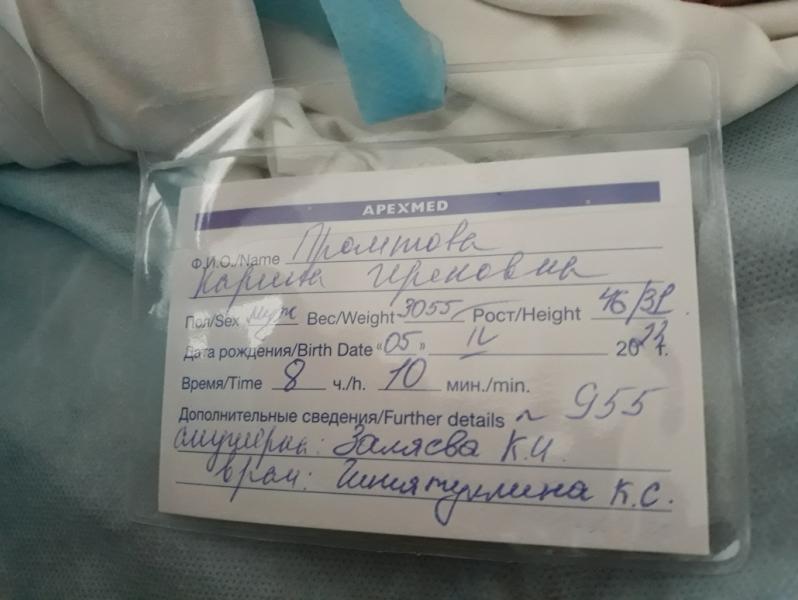 APEXMED
Ф.И.О./Name Промтова
Карина
Пол/Sex муж Вес/Weight 3055 Рост/Height 46/31
Дата рождения/Birth Date "05" IV 20 г.
Время/Time 8 ч./h. 10 мин./min.
Дополнительные сведения/Further details ~ 955
Заляева К.И.
врач: Гиниятуллина К.С.